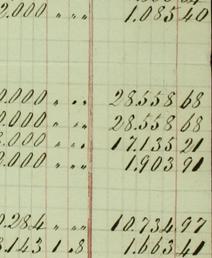 2.000 " " " 1.085 40
0.000 " " " 28.558 68
0.000 " " " 28.558 68
8.000 " " " 17.135 21
2.000 " " " 1.903 91
9.284 " " " 10.734 97
3.143 1 " 8 1.663 41